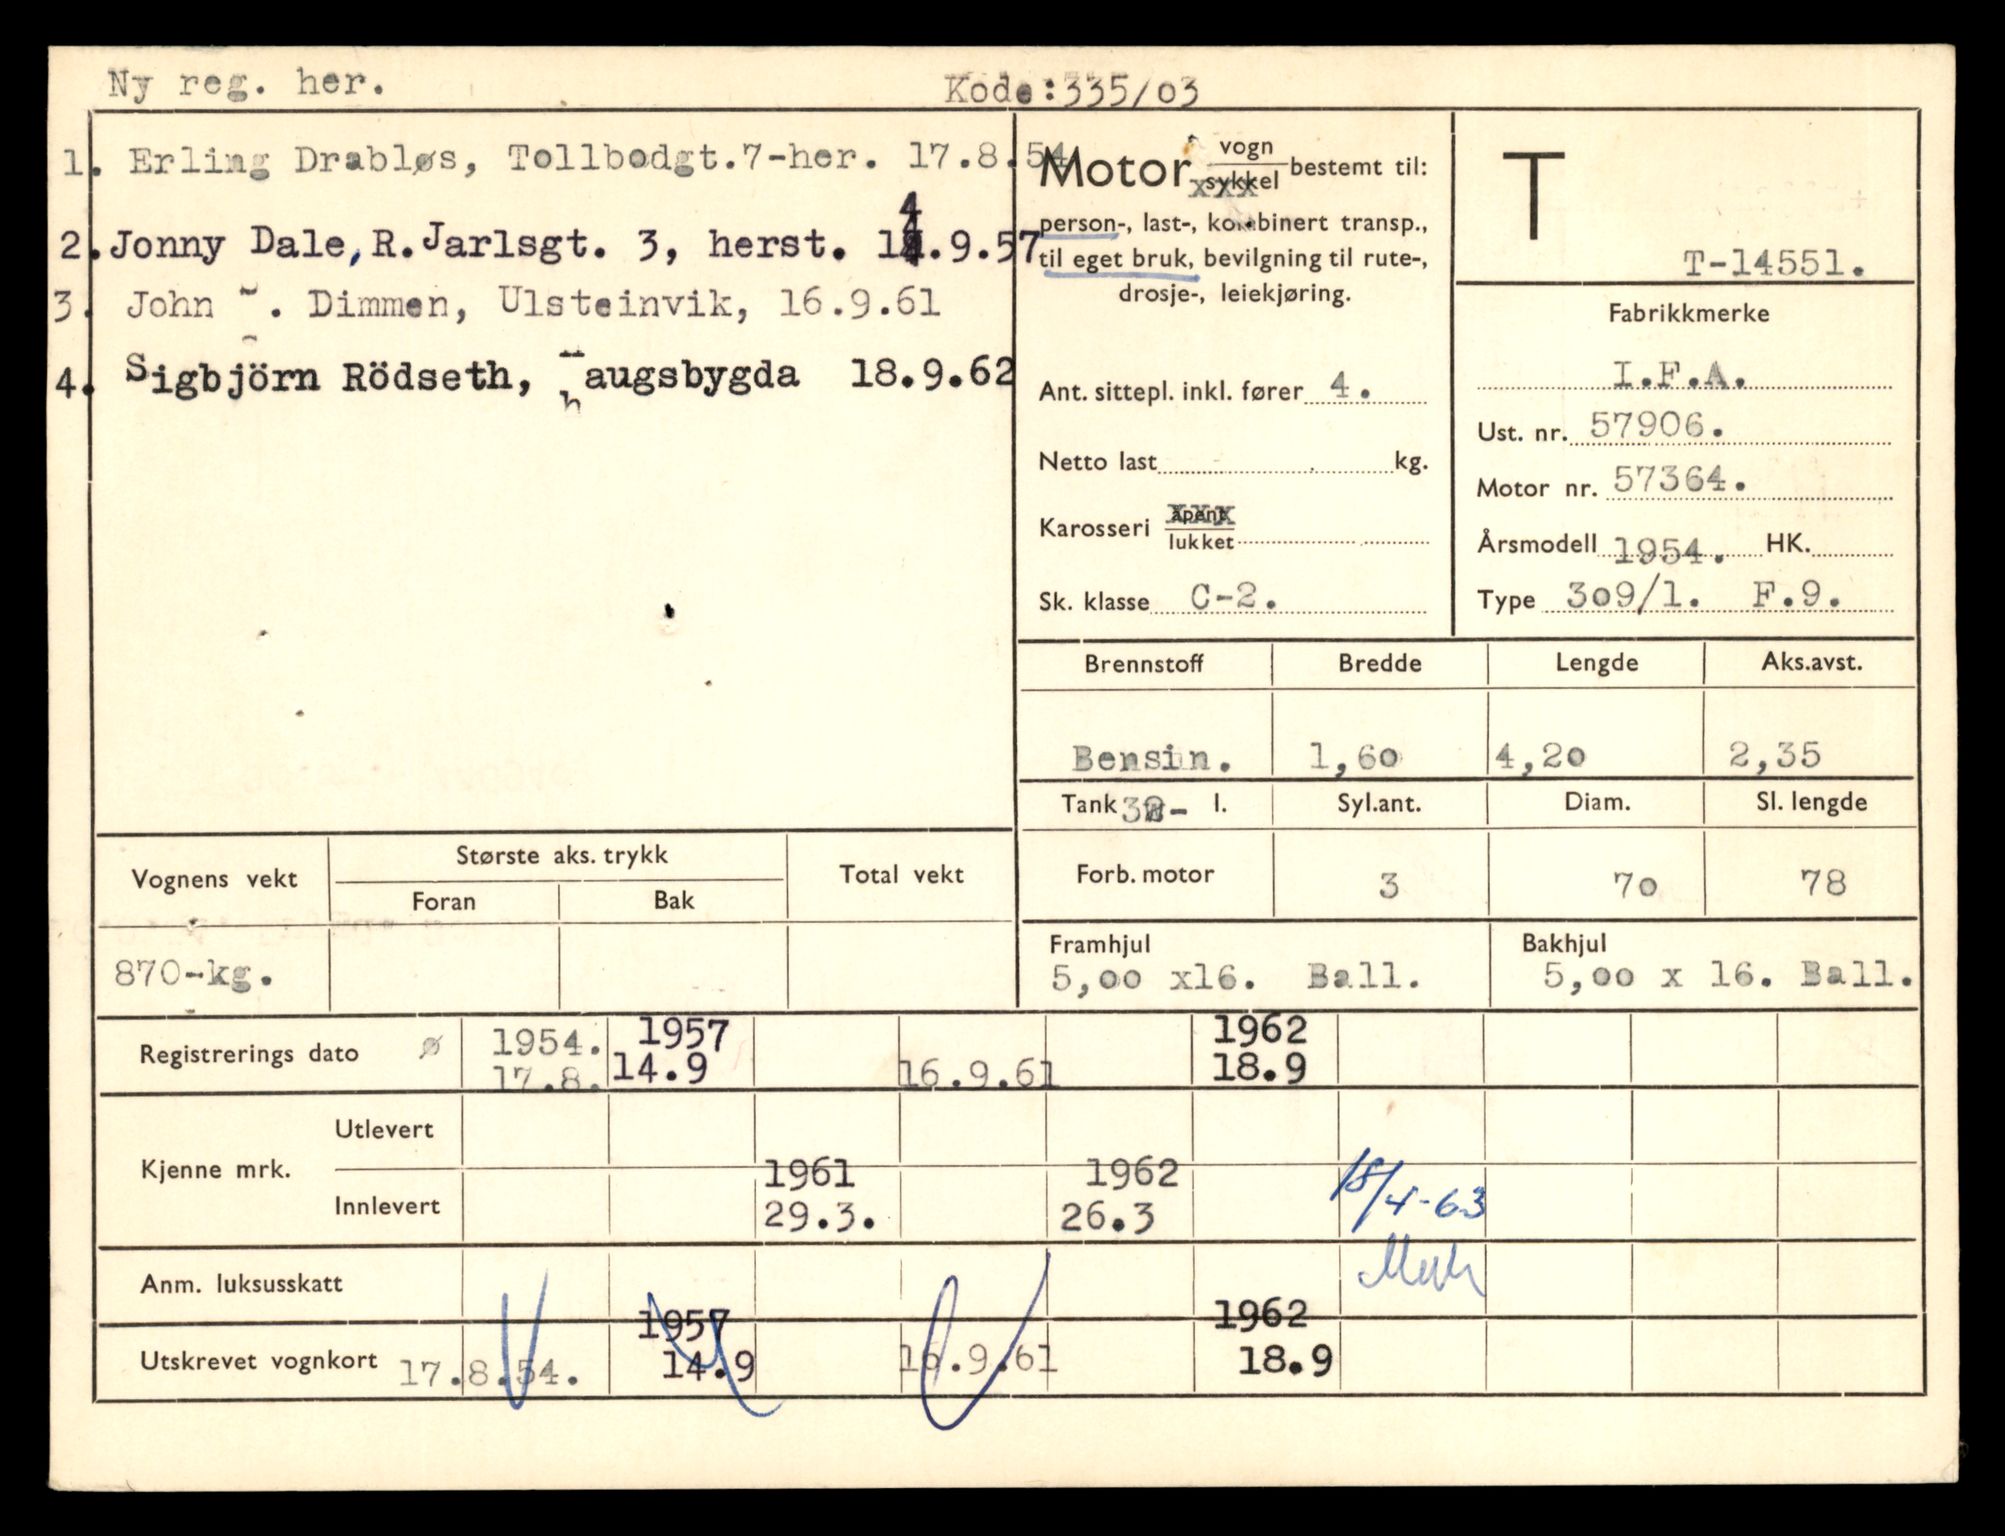 Ny reg. her.
Kode:335/03
1. Erling Drabløs, Tollbodgt.7-her. 17.8.54
2. Jonny Dale, R.Jarlsgt. 3, herst. 14.9.57
3. John . Dimmen, Ulsteinvik, 16.9.61
4. Sigbjörn Rödseth, haugsbygda 18.9.62
Motor vogn
sykkel bestemt til:
person-, last-, kombinert transp.,
til eget bruk, bevilgning til rute-,
drosje-, leiekjøring.
Ant. sittepl. inkl. fører 4.
Netto last kg.
Karosseri åpent
lukket
Sk. klasse C-2.
T
T-14551.
Fabrikkmerke
I.F.A.
Ust. nr. 57906.
Motor nr. 57364.
Årsmodell 1954. HK.
Type 309/1. F.9.
Brennstoff Bredde Lengde Aks.avst.
Bensin. 1,60 4,20 2,35
Tank l. Syl.ant. Diam. Sl. lengde
Forb. motor 3 70 78
Framhjul Bakhjul
5,00 x16. Ball. 5,00 x 16. Ball.
Vognens vekt Største aks. trykk Total vekt
Foran Bak
870-kg.
Registrerings dato ø 1954. 1957 1962
17.8. 14.9 16.9.61 18.9
Kjenne mrk. Utlevert
1961 1962
Innlevert 29.3. 26.3 18/4-63
Anm. luksusskatt
1957 1962
Utskrevet vognkort 17.8.54. 14.9 16.9.61 18.9